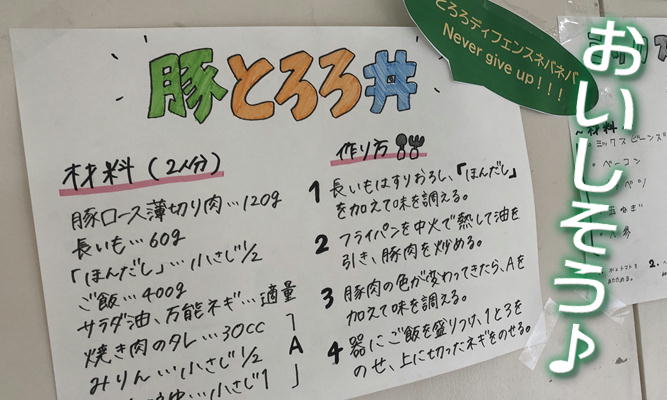 とろろディフェンスネバネバ
Never give up!!!
豚とろろ丼
材料(2人分)
豚ロース薄切り肉…120g
長いも…60g
「ほんだし」…小さじ1/2
ご飯…400g
サラダ油、万能ネギ…適量
焼き肉のタレ…30cc
みりん…小さじ1/2
…小さじ1
A
作り方
1 長いもはすりおろし、「ほんだし」
を加えて味を調える。
2 フライパンを中火で熱して油を
引き、豚肉を炒める。
3 豚肉の色が変わってきたら、Aを
加えて味を調える。
4 器にご飯を盛りつけ、1と3を
のせ、上に切ったネギをのせる。
おいしそう♪
~材料
・ミックスビーンズ
・ベーコン